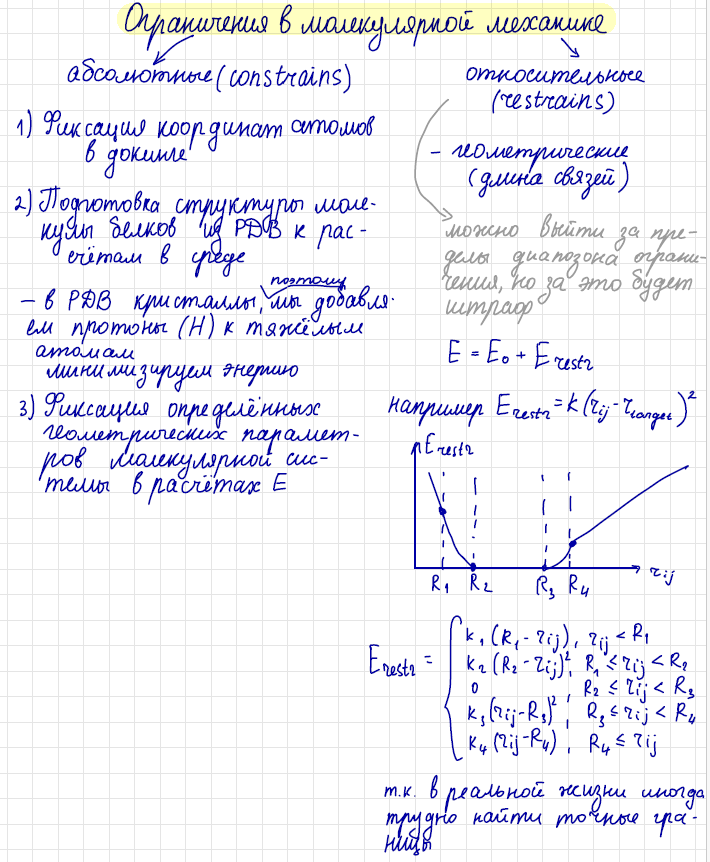 Ограничения в молекулярной механике
абсолютные (constrains)
1) Фиксация координат атомов
в докинге
2) Подготовка структуры моле-
кулы белков из PDB к рас-
счётам в среде
поэтому
- в PDB кристаллы, мы добавля-
ем протоны (H) к тяжёлым
атомам
минимизируем энергию
3) Фиксация определённых
геометрических парамет-
ров молекулярной сис-
темы в расчётах E
относительные
(restrains)
- геометрические
(длина связей)
можно выйти за пре-
делы диапозона ограни-
чения, но за это будет
штраф
E = E₀ + E restr
например E restr = k (rij - r target)²
E restr
R₁ R₂ R₃ R₄ rij
E restr =
k₁ (R₁ - rij), rij < R₁
k₂ (R₂ - rij)², R₁ ≤ rij < R₂
0 , R₂ ≤ rij < R₃
k₃ (rij - R₃)², R₃ ≤ rij < R₄
k₄ (rij - R₄), R₄ ≤ rij
т.к. в реальной жизни иногда
трудно найти точные гра-
ницы